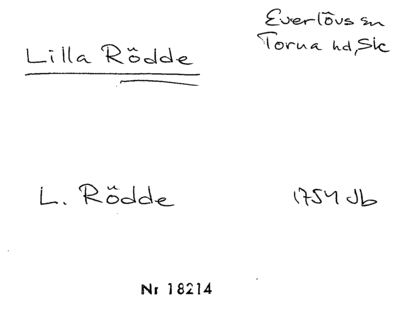 Everlövs sn
Lilla Rödde
Torna hd, Sk
L. Rödde
1754 Jb
Nr 18214